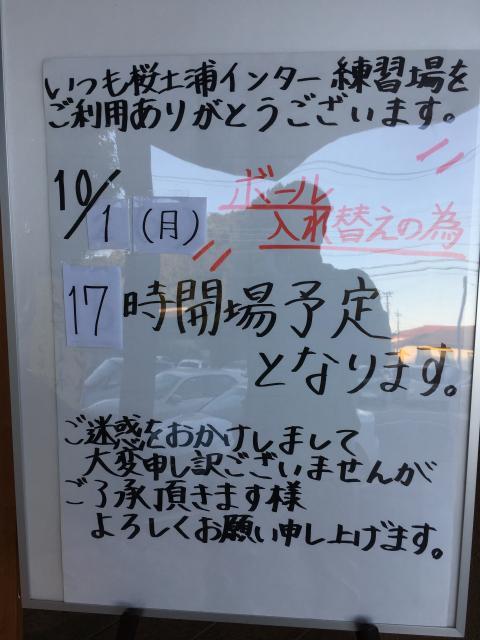 いつも桜土浦インター練習場を
ご利用ありがとうございます。
10/1(月)
ボール
入れ替えの為
17時開場予定
となります。
ご迷惑をおかけしまして
大変申し訳ございませんが
ご了承頂きます様
よろしくお願い申し上げます。